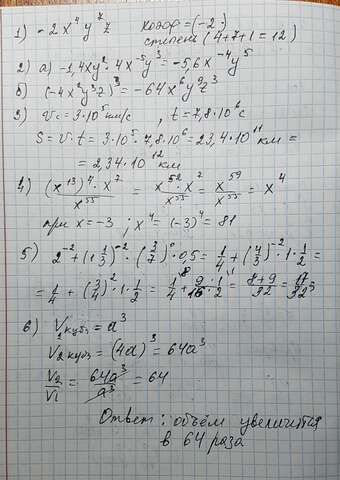 1) -2x⁴y⁷z коэф = (-2)
степень (4+7+1=12)
2) а) -1,4xy²·4x⁻⁵y³ = -5,6x⁻⁴y⁵
б) (-4x²y³z)³ = -64x⁶y⁹z³
3) v = 3·10⁵ км/с, t = 7,8·10⁶ с
S = v·t = 3·10⁵·7,8·10⁶ = 23,4·10¹¹ км =
= 2,34·10¹² км
4) (x¹³)⁴·x⁷/x⁵⁵ = x⁵²·x⁷/x⁵⁵ = x⁵⁹/x⁵⁵ = x⁴
при x = -3; x⁴ = (-3)⁴ = 81
5) 2⁻² + (1 1/3)⁻²·(3/7)⁰·0,5 = 1/4 + (4/3)⁻²·1·1/2 =
= 1/4 + (3/4)²·1·1/2 = 1/4 + 9/16·1/2 = 8+9/32 = 17/32
6) V₁куб = a³
V₂куб = (4a)³ = 64a³
V₂/V₁ = 64a³/a³ = 64
Ответ: объём увеличится
в 64 раза